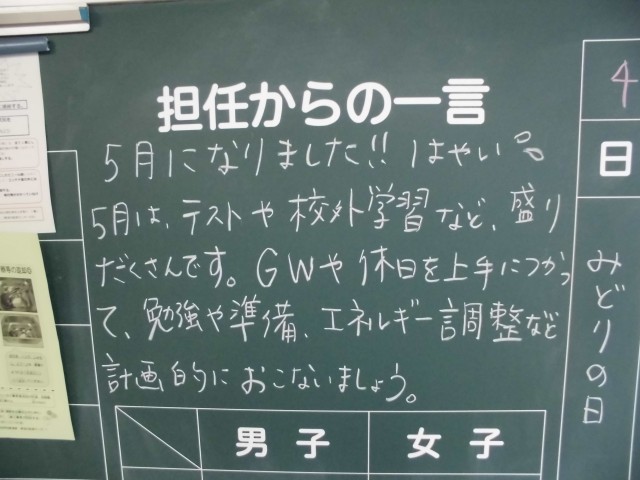 担任からの一言
5月になりました!! はやい
5月は、テストや校外学習など、盛り
だくさんです。GWや休日を上手につかっ
て、勉強や準備、エネルギー調整など
計画的におこないましょう。
男子
女子
4
日
みどりの日